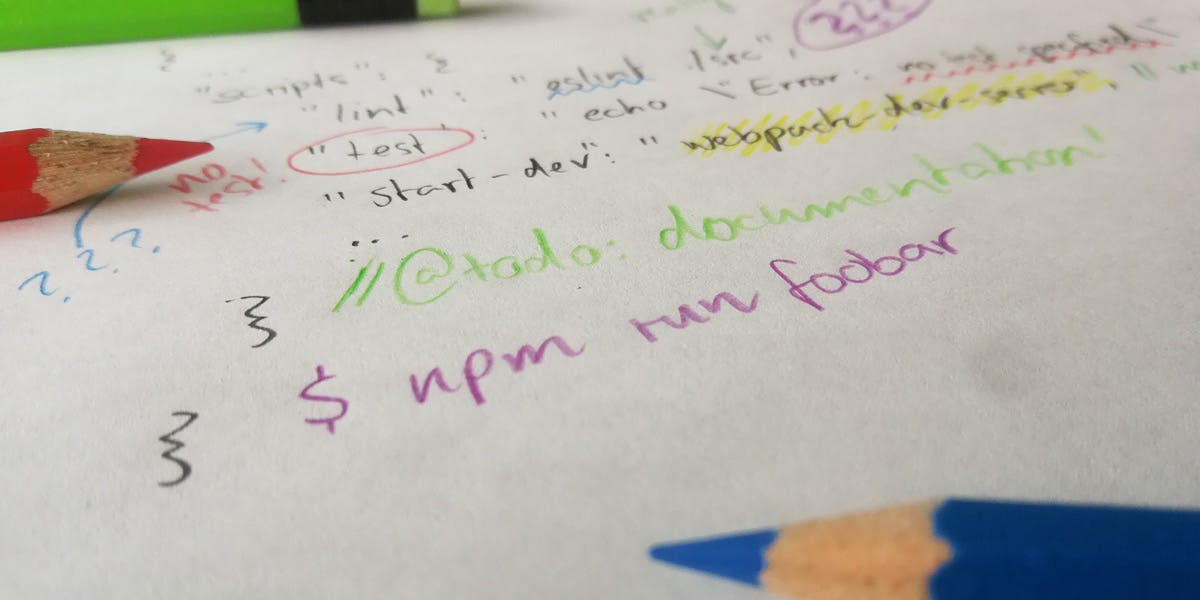 ???
}
"scripts": {
"lint": "eslint ./src",
"test": "echo \"Error: no test specified\"
no test!
"start-dev": "webpack-dev-server", //
...
? ? ?
//@todo: documentation!
}
$ npm run foobar
}